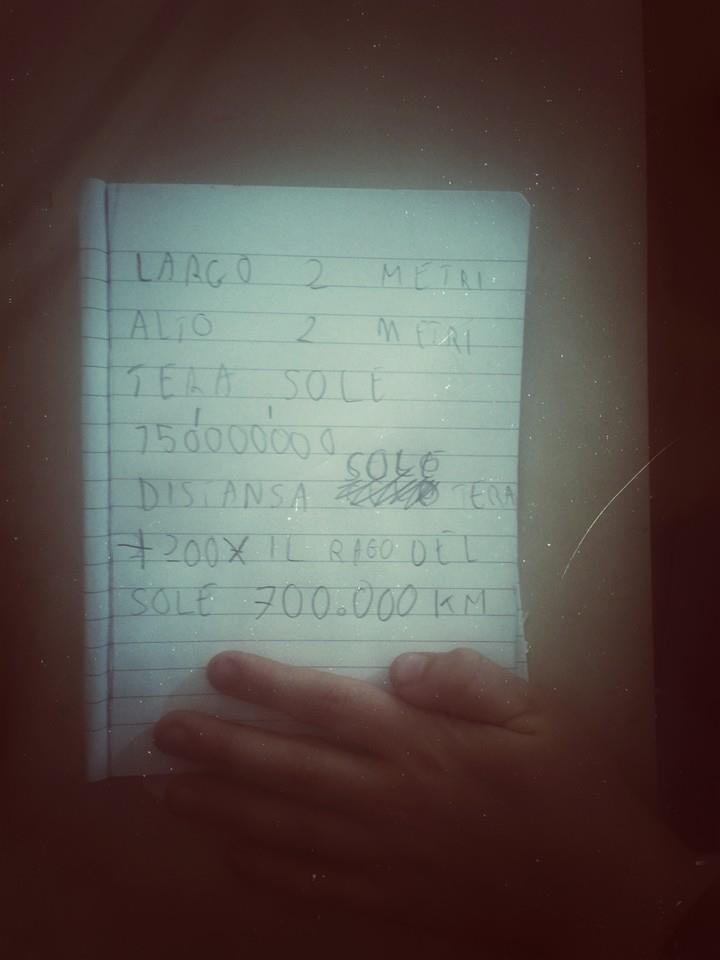 LARGO 2 METRI
ALTO 2 METRI
TERA SOLE
150'000'000
SOLE
DISTANSA TERA
+200X IL RAGO DEL
SOLE 700.000 KM